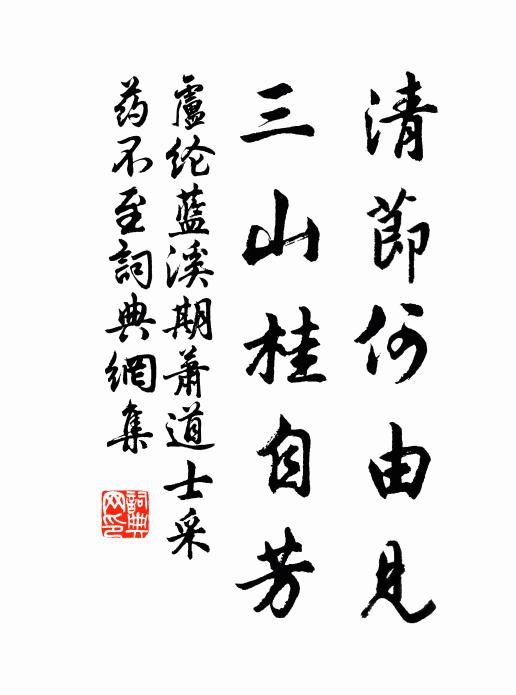 清節何由見
三山桂自芳
盧纶藍溪期蕭道士采
药不至詞典網集
詞典
网印